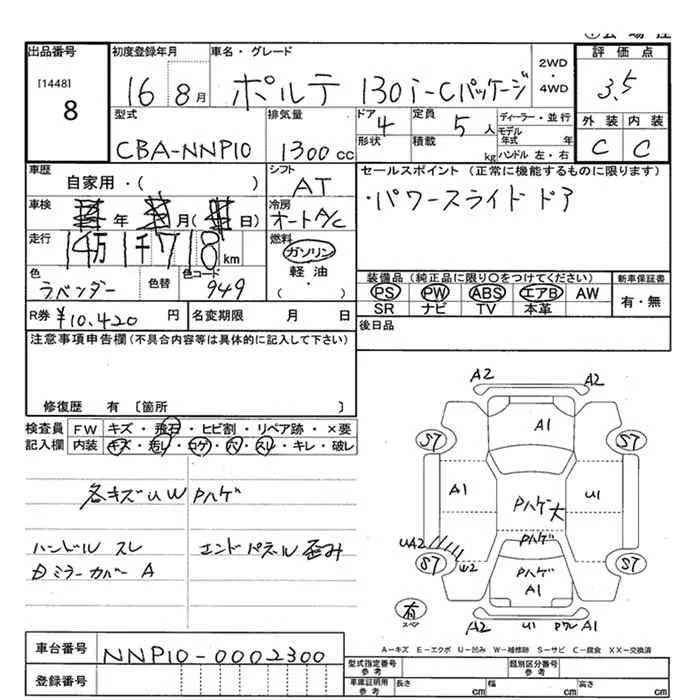 出品番号 初度登録年月 車名・グレード 評価点
[1448] 8
16 8月 ポルテ 130i-Cパッケージ 2WD・4WD 3.5
型式 排気量 ドア 定員 ディーラー・並行 外装 内装
CBA-NNP10 1300cc 4 5人 モデル年式 年 C C
形状 積載 kg ハンドル 左・右
車歴 シフト セールスポイント (正常に機能するものに限ります)
自家用・( ) AT ・パワースライドドア
車検 年 月( 日) 冷房 オートA/C
走行 14万1千718km 燃料 ガソリン
軽油・( )
色 色替 色コード
ラベンダー 949
装備品 (純正品に限り○をつけてください) 新車保証書
PS PW ABS エアB AW 有・無
SR ナビ TV 本革
R券 ¥10,420円 名変期限 月 日 後日品
注意事項申告欄 (不具合内容等は具体的に記入して下さい)
修復歴 有 〔箇所 〕
検査員 FW キズ・飛石・ヒビ割・リペア跡・×要
記入欄 内装 キズ・汚レ・コゲ・穴・スレ・キレ・破レ
各キズUW Pハゲ
ハンドル スレ エンドパネル歪み
Dミラーカバー A
A2 A2
A1
S7 S7
A1 Pハゲ大 U1
Pハゲ
UA2 W2
S7 Pハゲ S7
A1
有 スペア
A2 U1 PハゲA1
A-キズ E-エクボ U-凹み W-補修跡 S-サビ C-腐食 XX-交換済
車台番号 NNP10-0002300
登録番号
型式指定番号 参考 類別区分番号 参考
車庫証明用 参考 長さ cm 幅 cm 高さ cm